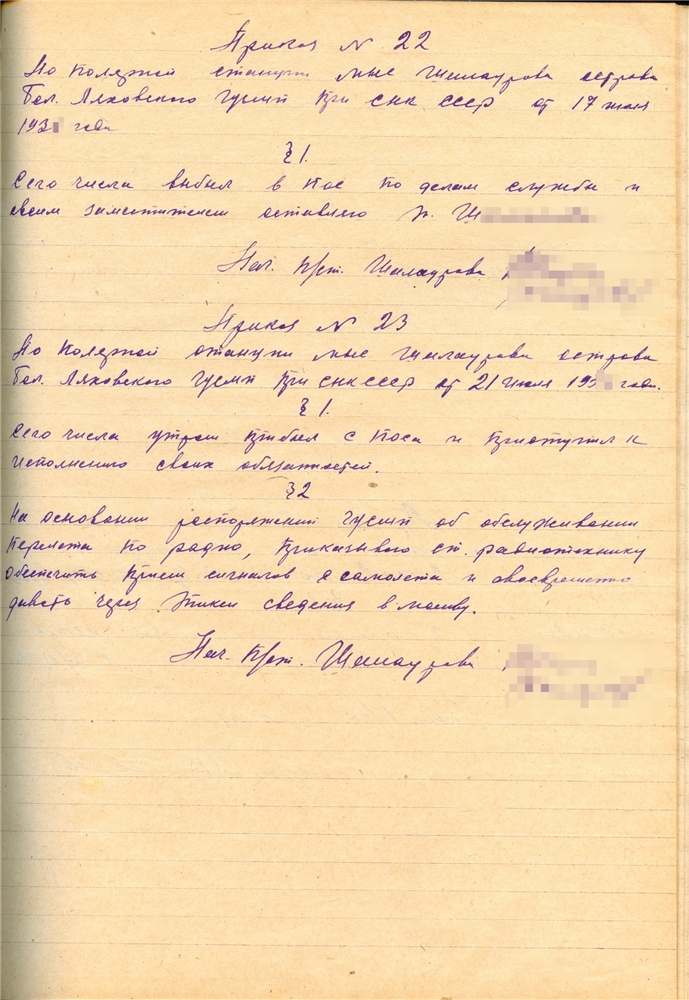 Приказ № 22
По полярной станции мыс Шалаурова острова
Бол. Ляховского ГУСМП при СНК СССР от 17 июля
193 года
§ 1.
Сего числа выбыл в пос по делам службы и
своим заместителем оставляю т. Ш
Нач. п/ст. Шалаурова
Приказ № 23
По полярной станции мыс Шалаурова острова
Бол. Ляховского ГУСМП при СНК СССР от 21 июля 193 года.
§ 1.
Сего числа утром прибыл с поса и приступил к
исполнению своих обязанностей.
§ 2
На основании распоряжений ГУСМП об обслуживании
перелета по радио, приказываю ст. радиотехнику
обеспечить прием сигналов с самолета и своевременно
давать через Тикси сведения в москву.
Нач. п/ст. Шалаурова